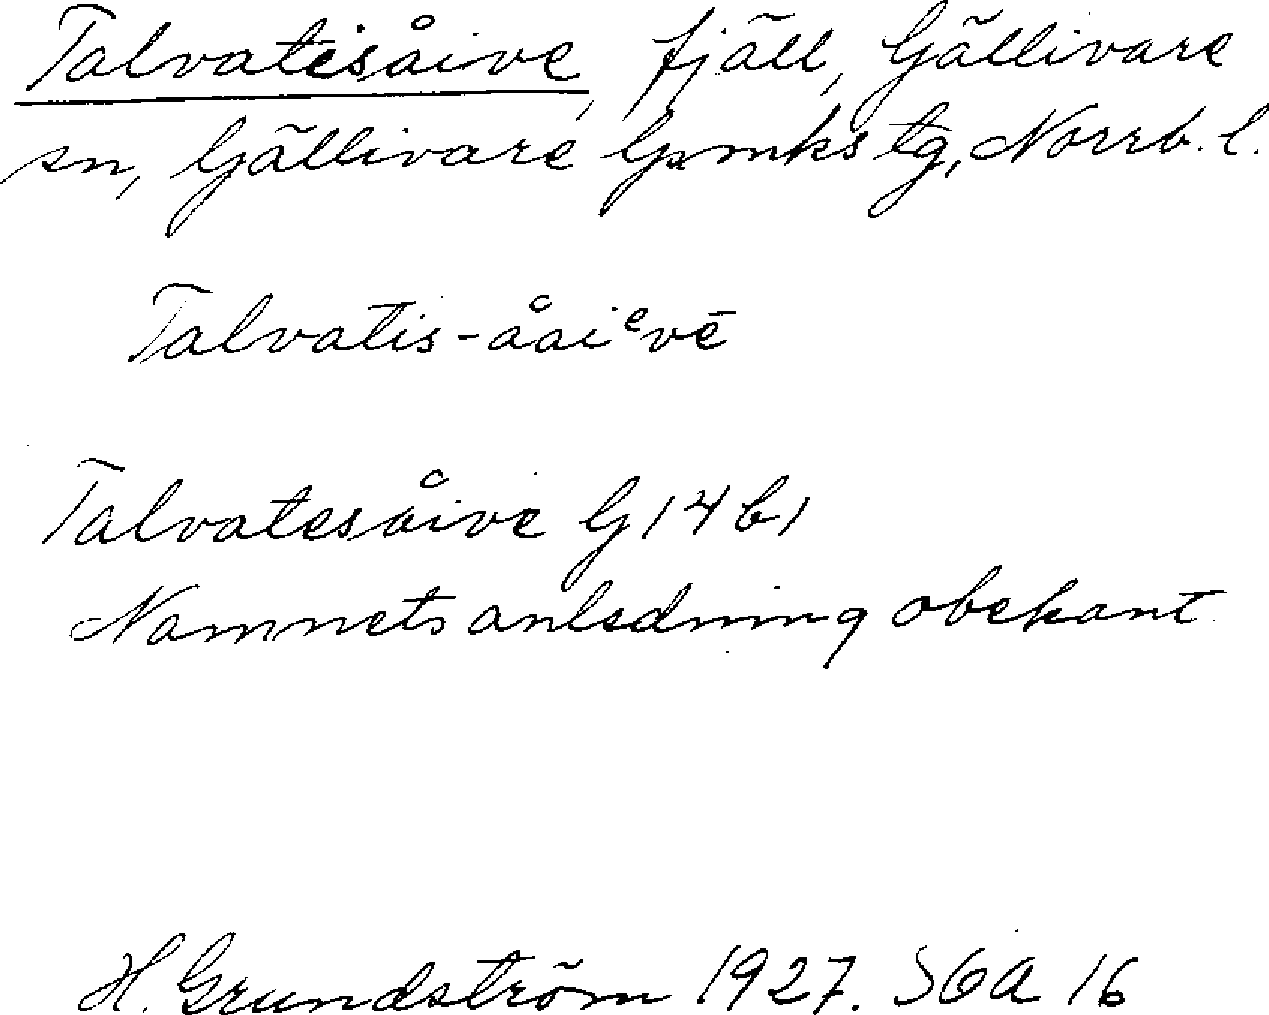 Talvatisåive, fjäll, Gällivare
sn, Gällivare lpmks tg, Norrb. l.
Talvatis-åaiᵉvē
Talvatesåive G 14 b 1
Namnets anledning obekant.
H. Grundström 1927. SGA 16